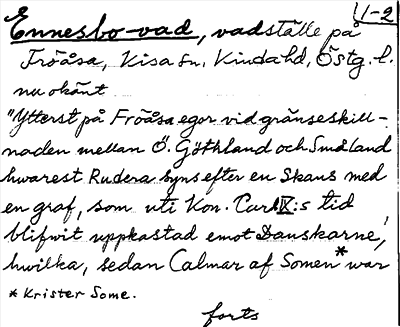 1-2
Ennesbo-vad, vadställe på
Fröåsa, Kisa sn, Kinda hd, Östg. l.
nu okänt.
"Ytterst på Fröåsa egor vid gränseskill-
naden mellan Ö. Göthland och Småland
hwarest Rudera synes efter en Skans med
en graf, som uti Kon. Carl IX:s tid
blifwit uppkastad emot Danskarne,
hwilka, sedan Calmar af Somen* war
* Krister Some.
forts